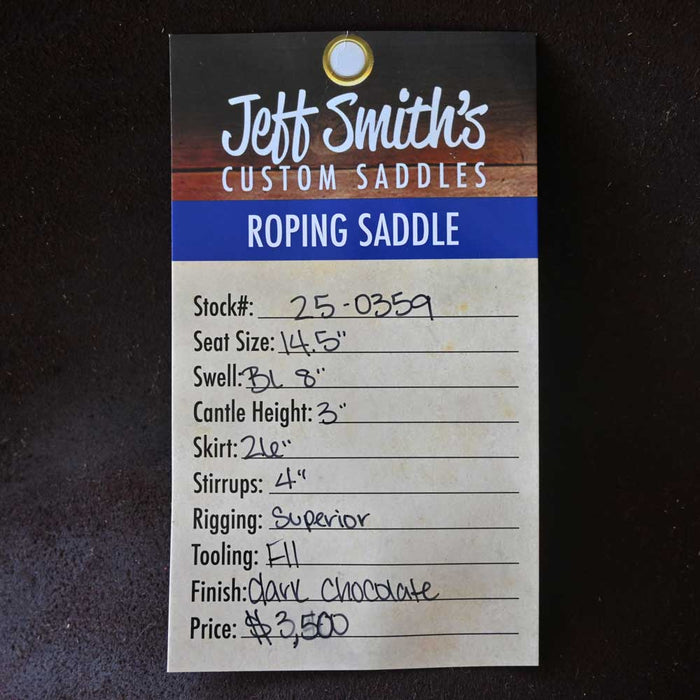 Jeff Smith's
CUSTOM SADDLES
ROPING SADDLE
Stock#: 25-0359
Seat Size: 14.5"
Swell: BL 8"
Cantle Height: 3"
Skirt: 26"
Stirrups: 4"
Rigging: Superior
Tooling: F11
Finish: dark chocolate
Price: $3,500